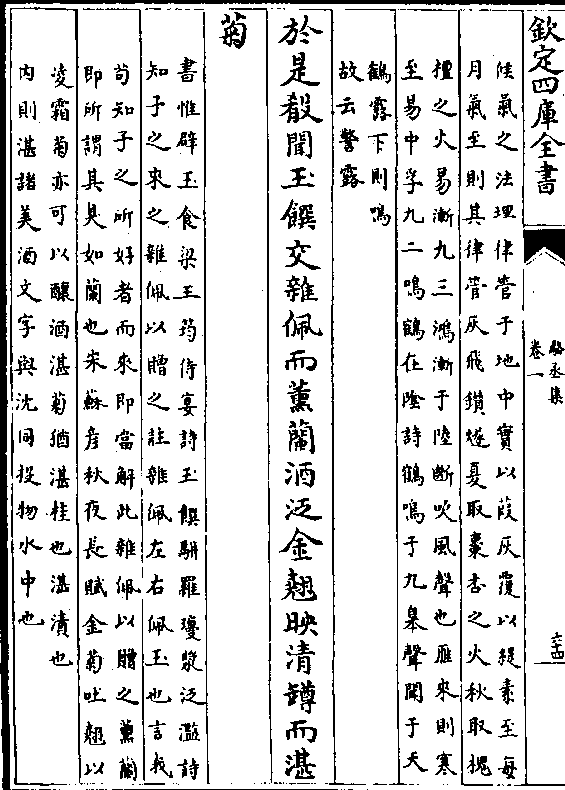 欽定四庫全書
駱丞集
卷一
六十四
候氣之法理律管于地中實以葭灰覆以緹素至每
月氣至則其律管灰飛鑚燧夏取棗杏之火秋取槐
檀之火易漸九三鴻漸于陸斷吹風聲也雁來則寒
至易中孚九二鳴鶴在陰詩鶴鳴于九臯聲聞于天
鶴露下則鳴
故云警露
於是殽聞玉饌交雜佩而薫蘭酒泛金翹映清罇而湛
菊
書惟辟玉食梁王筠侍宴詩玉饌駢羅瓊漿泛濫詩
知子之來之雜佩以贈之註雜佩左右佩玉也言我
茍知子之所好者而來即當解此雜佩以贈之薫蘭
即所謂其臭如蘭也宋蘇彦秋夜長賦金菊吐翹以
凌霜菊亦可以釀酒湛菊猶湛桂也湛漬也
内則湛諸美酒文字與沈同投物水中也